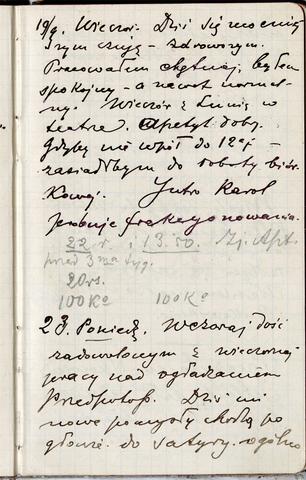 19/9. Wieczór. Dziś się mocniej
trzym czuję – zdrowszym.
Pracowałem chętniej, byłem
spokojny – a nawet normal-
ny. Wieczór z Lunią w
teatrze. Apetyt dobr.
Gdyby nie wpół do 12ej –
zasiadłbym do roboty biur-
kowej. Jutro Karol
próbuje frakcjonowania.
22 r. i 13.50.
przed 3ma tyg.
20 rs.
100 Ko 100 Ko
23. Poniedz. Wczoraj dość
zadowolonym z wieczornej
pracy nad oglądaniem
Przedpotop. Dziś mi
nowe pomysły chodzą po
głowie. do satyry. ogólno